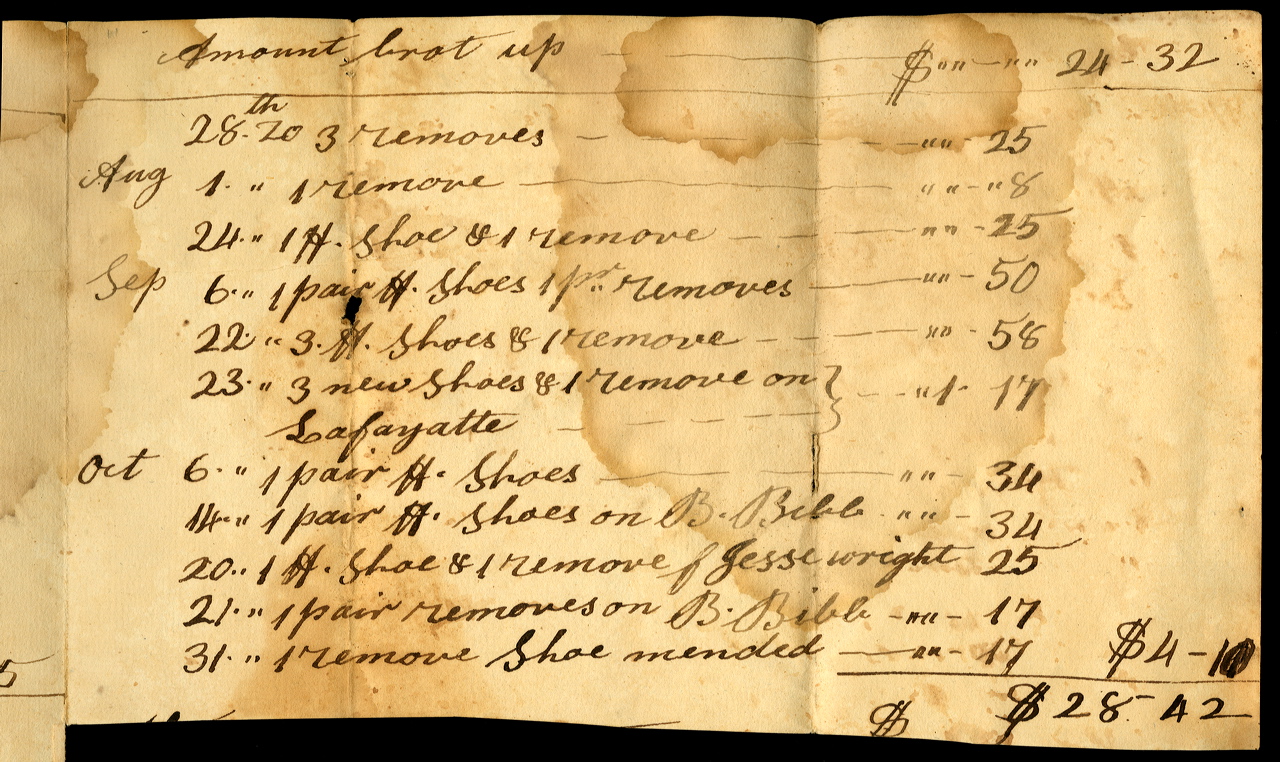 Amount brot up $ "" - "" 24 - 32
28.th To 3 removes - "" - 25
Aug 1. " 1 remove "" - "8
24. " 1 H. Shoe & 1 remove - "" - 25
Sep 6. " 1 pair H. Shoes 1 pr. removes "" - 50
22 " 3. H. Shoes & 1 remove - "" - 58
23. " 3 new Shoes & 1 remove on } - "1 - 17
Lafayatte
Oct 6. " 1 pair H. Shoes "" - 34
14. " 1 pair H. Shoes on B. Bibb "" - 34
20. " 1 H. Shoe & 1 remove f Jesse wright 25
21. " 1 pair removes on B. Bibb - "" - 17
31. " 1 remove Shoe mended - "" - 17 $4 - 10
$ $28 - 42
5